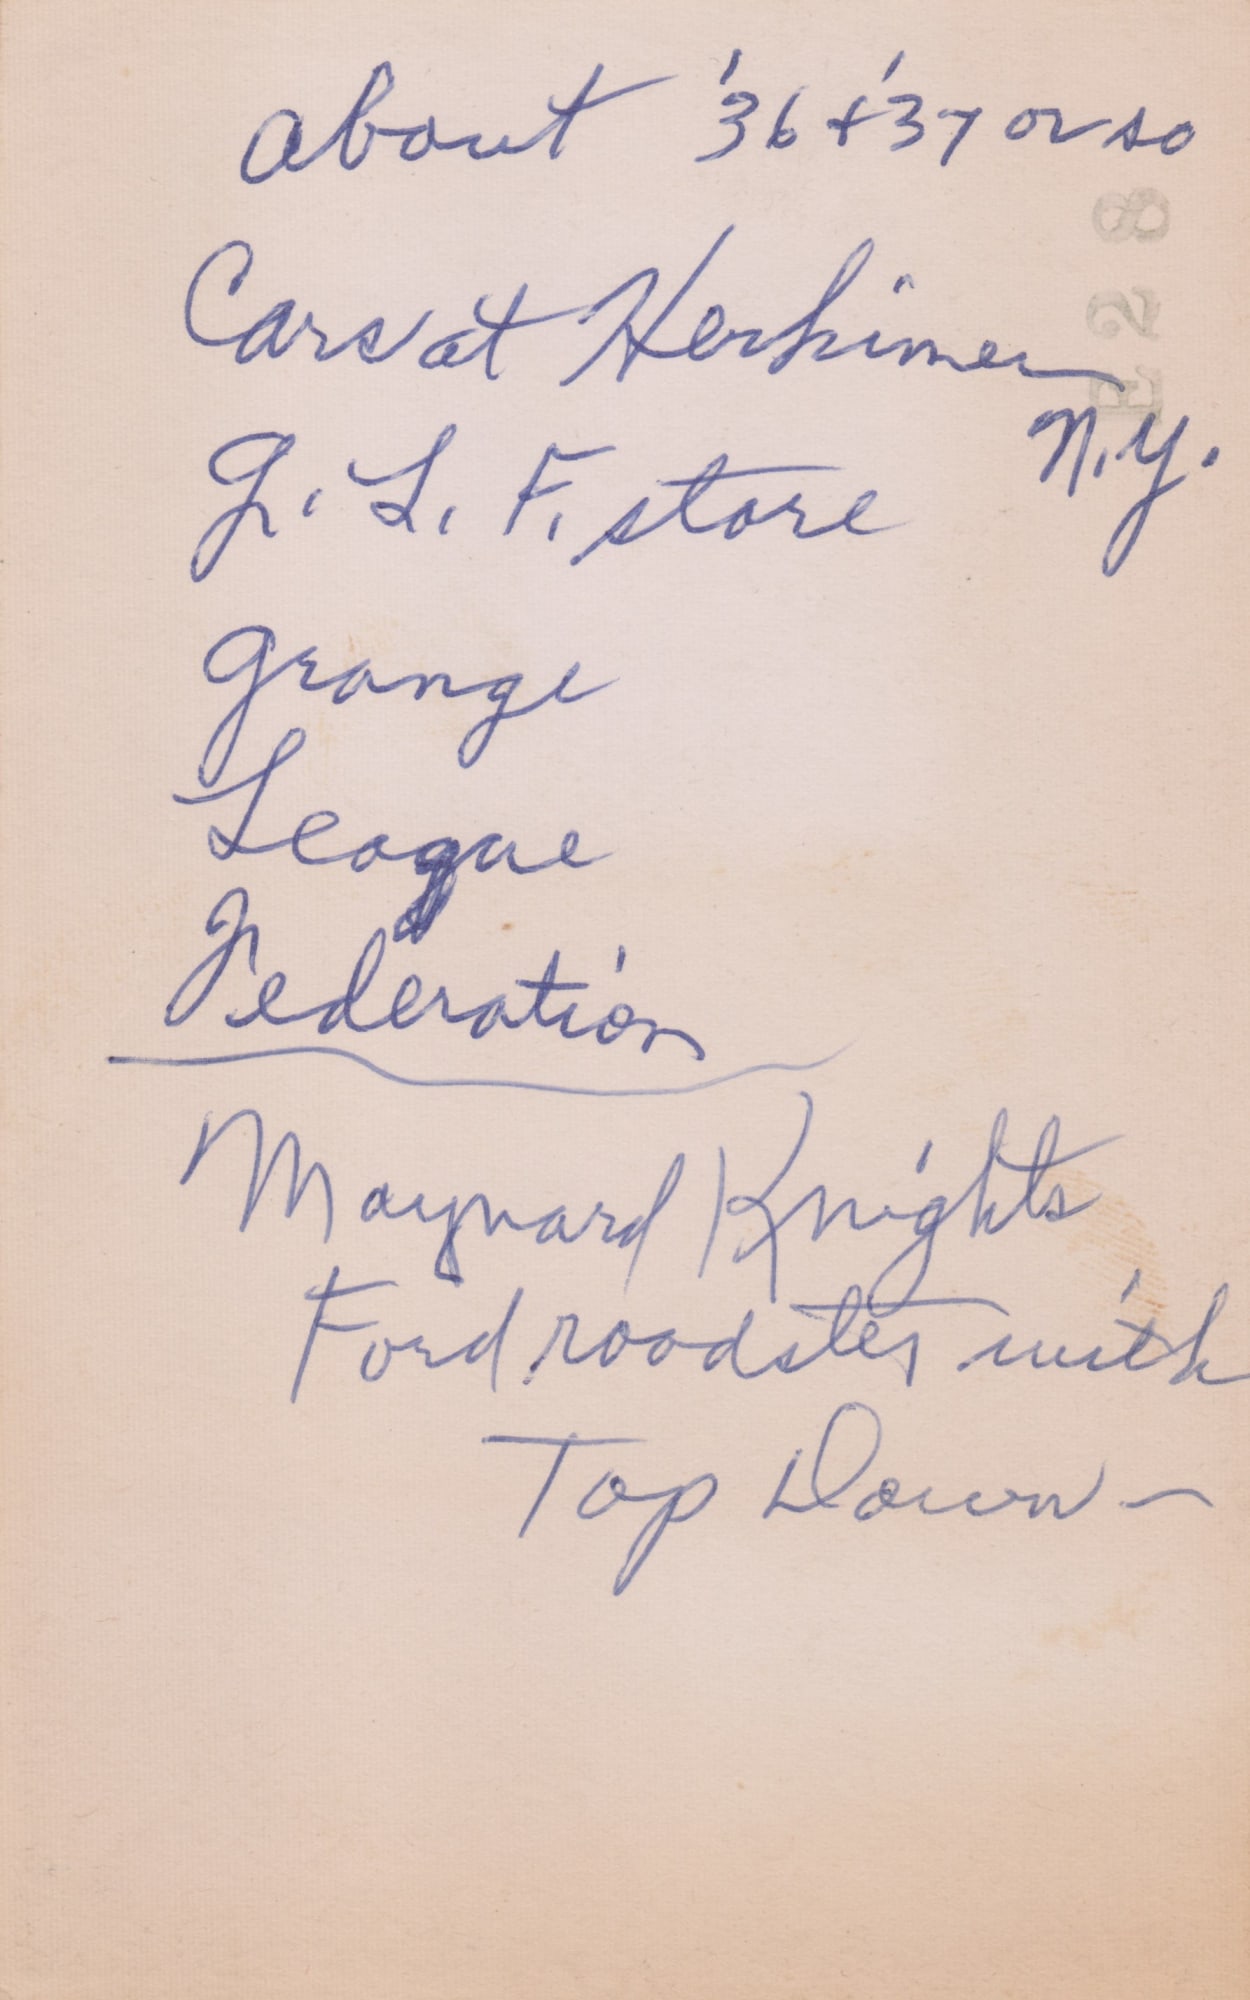 about '36 + '37 or so
Cars at Herkimer
N.Y.
G. L. F. store
Grange
League
Federation
Maynard Knights
Ford roadster with
Top Down —
E 2 8